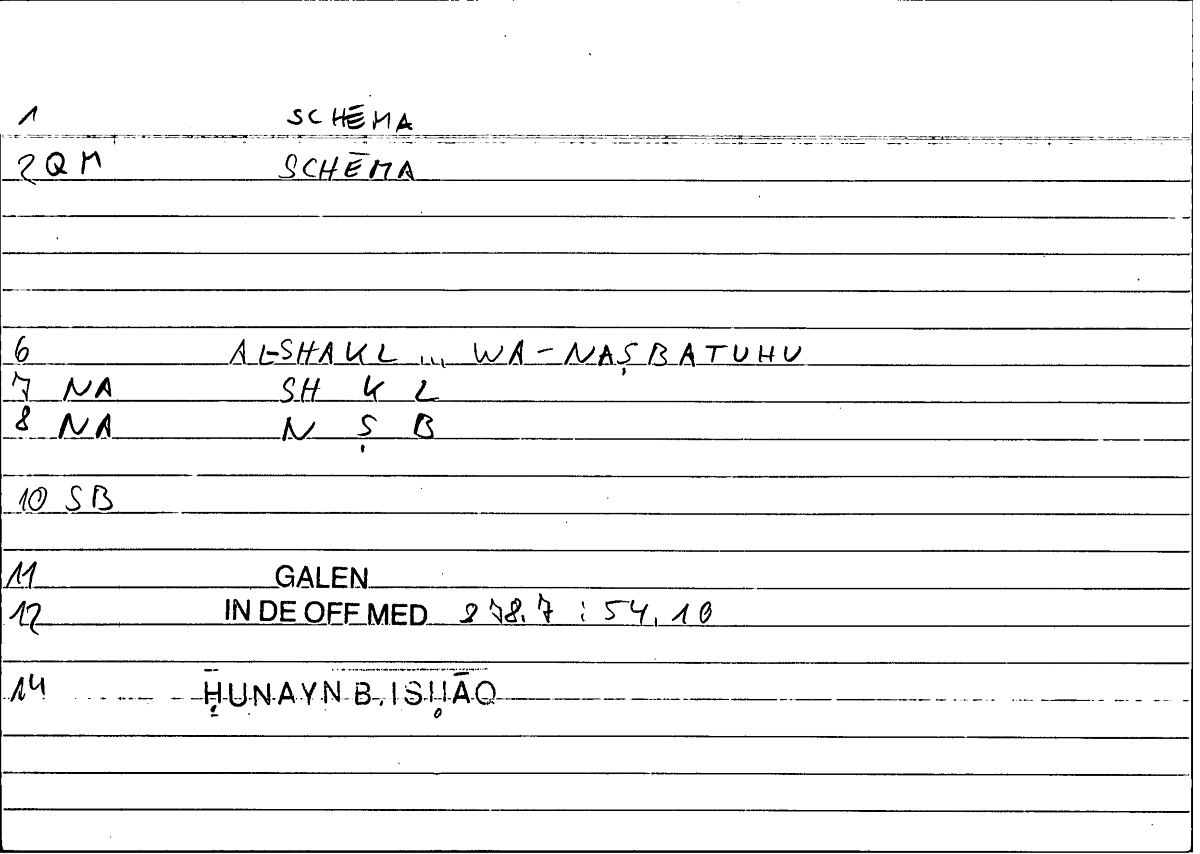 1 SCHĒMA
2 QM SCHĒMA
6 AL-SHAKL ... WA-NAṢBATUHU
7 NA SH K L
8 NA N Ṣ B
10 SB
11 GALEN
12 IN DE OFF MED 878.7 : 54.10
14 ḤUNAYN B. ISḤĀQ